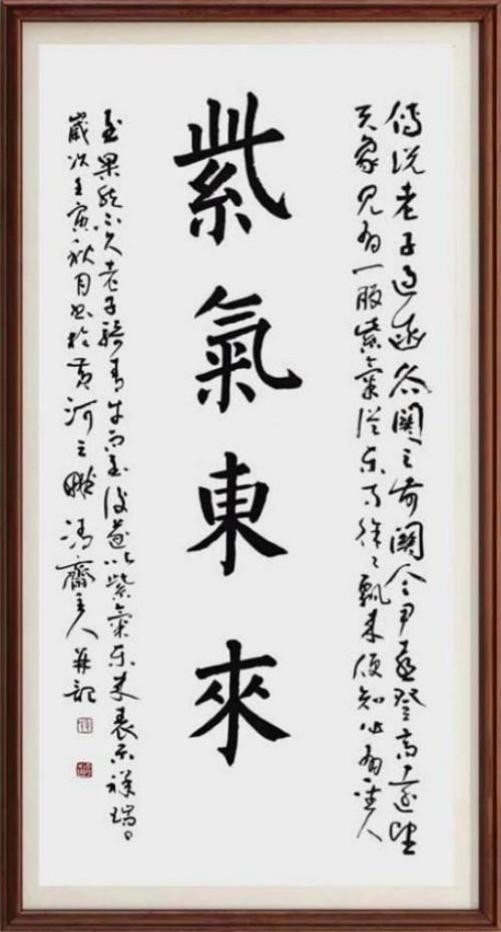 傳说老子过函谷關之前關令尹喜登高遠望
天象見有一股紫氣從东方徐々飄来便知必有聖人
紫氣東來
至果然不久老子骑青牛而至後遂以紫氣东来表示祥瑞
歲次壬寅秋月书於黄河之畔齋主人并記